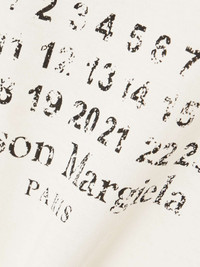 1 2 3 4 5 6 7
11 12 13 14 15
8 19 20 21 22 2
son Margiela
PARIS